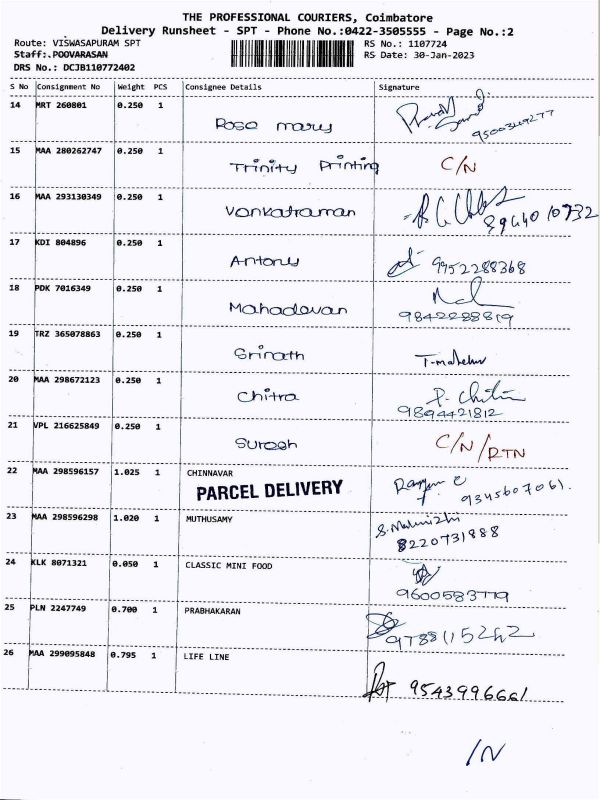 THE PROFESSIONAL COURIERS, Coimbatore
Delivery Runsheet - SPT - Phone No.:0422-3505555 - Page No.:2
Route: VISWASAPURAM SPT
RS No.: 1107724
Staff:.POOVARASAN
RS Date: 30-Jan-2023
DRS No.: DCJB110772402
S No Consignment No Weight PCS Consignee Details Signature
14 MRT 260801 0.250 1 Rose mary
15 MAA 280262747 0.250 1 Trinity Printing C/N
16 MAA 293130349 0.250 1 Vankatraman
17 KDI 804896 0.250 1 Antony 9952288368
18 PDK 7016349 0.250 1 Mahadevan 9842288819
19 TRZ 365078863 0.250 1 Srinath
20 MAA 298672123 0.250 1 Chitra 9894421812
21 VPL 216625849 0.250 1 Suresh C/N/RTN
22 MAA 298596157 1.025 1 CHINNAVAR 9345607061.
PARCEL DELIVERY
23 MAA 298596298 1.020 1 MUTHUSAMY 8220731888
24 KLK 8071321 0.050 1 CLASSIC MINI FOOD 9600583779
25 PLN 2247749 0.700 1 PRABHAKARAN
26 MAA 299095848 0.795 1 LIFE LINE 9543996661
/N